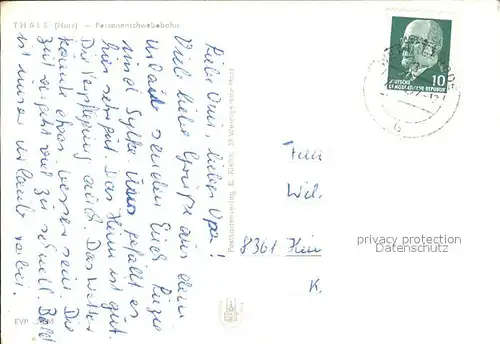 THALE (Harz) — Personenschwebebahn
Liebe Omi, lieber Opa!
Viele liebe Grüße aus dem
Urlaub senden Euch
und Sylke. Uns gefällt es
hier sehr gut. Das Heim ist gut.
Die Verpflegung auch. Das Wetter
könnte etwas besser sein. Die
Zeit vergeht viel zu schnell. Bald
ist unser Urlaub vorbei.
Postkartenverlag E. Riehn, 37 Wernigerode Harz
10
DEUTSCHE
DEMOKRATISCHE REPUBLIK
b
Fam
Wil
8361
K.
privacy protection
Datenschutz
EVP